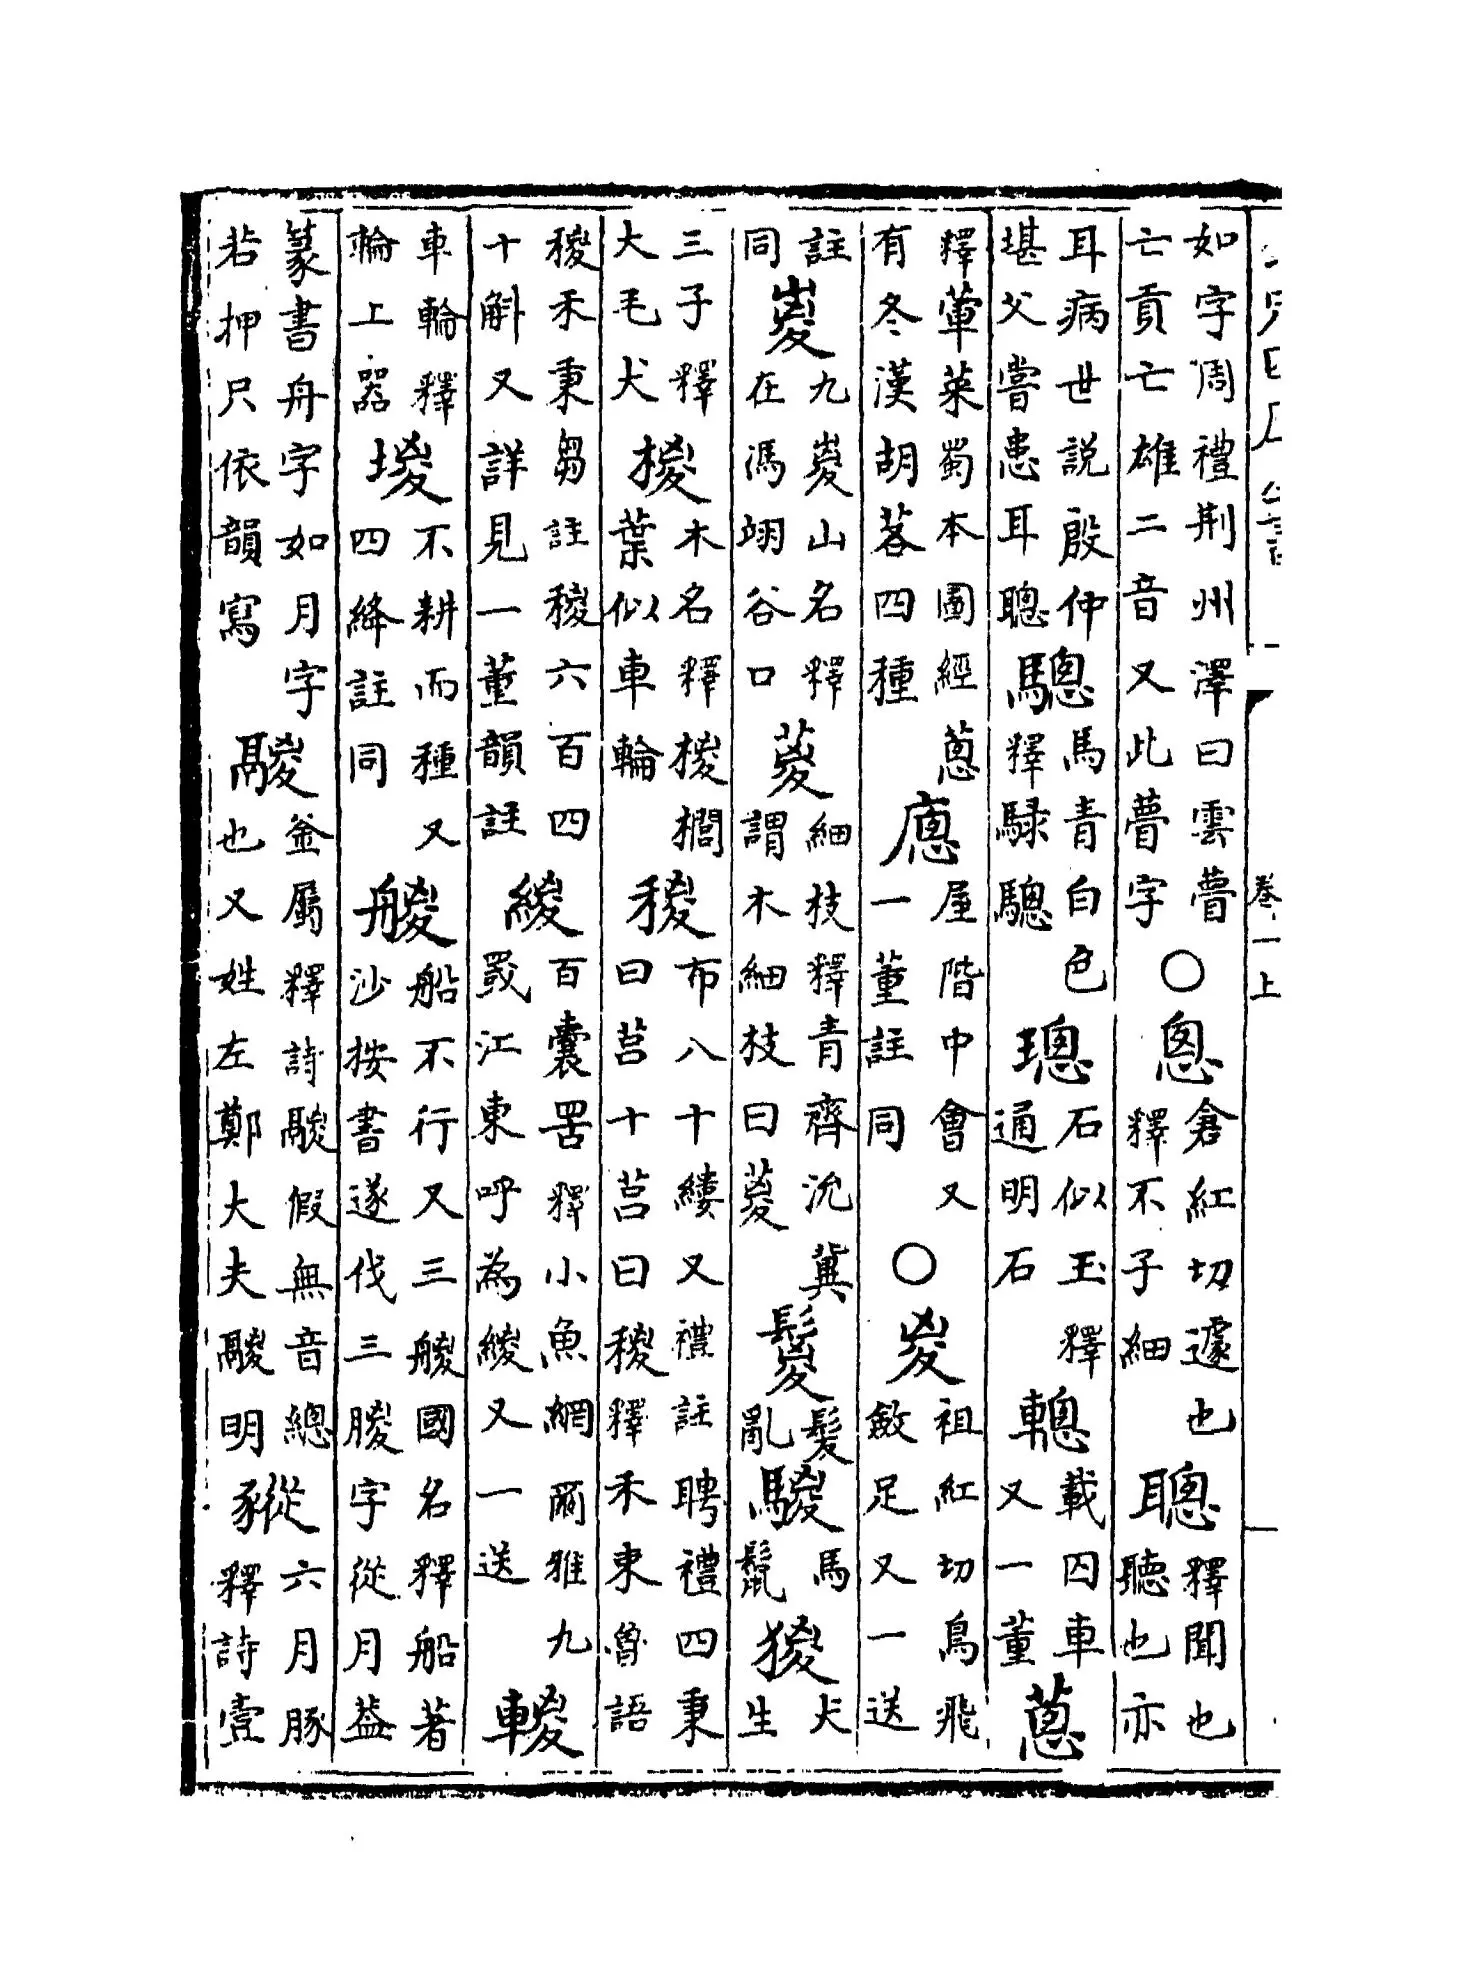 如字周禮荆州澤曰雲瞢亡貢亡雄二音又此瞢字○悤倉紅切遽也釋不子細聰釋聞也聽也亦
耳病世説殷仲堪父嘗患耳聰驄馬青白色釋騄驄璁石似玉釋通明石䡯載囚車又一董蔥
釋葷菜蜀本圖經蔥有冬漢胡茖四種㢔屋階中會又一董註同○㚇祖紅切鳥飛斂足又一送
註同嵏九嵏山名釋在馮翊谷口葼細枝釋青齊沇冀謂木細枝曰葼鬉髮亂騣馬鬣猣犬生
三子釋大毛犬椶木名釋椶櫚葉似車輪稯布八十縷又禮註聘禮四秉曰莒十莒曰稯釋禾束魯語
稯禾秉芻註稯六百四十斛又詳見一董韻註緵百囊罟釋小魚網爾雅九罭江東呼為緵又一送𨍉
車輪釋輪上器堫不耕而種又四絳註同艐船不行又三艐國名釋船著沙按書遂伐三朡字從月葢
篆書舟字如月字若押只依韻寫鬷釜屬釋詩鬷假無音總也又姓左鄭大夫鬷明豵六月豚釋詩壹
卷一上